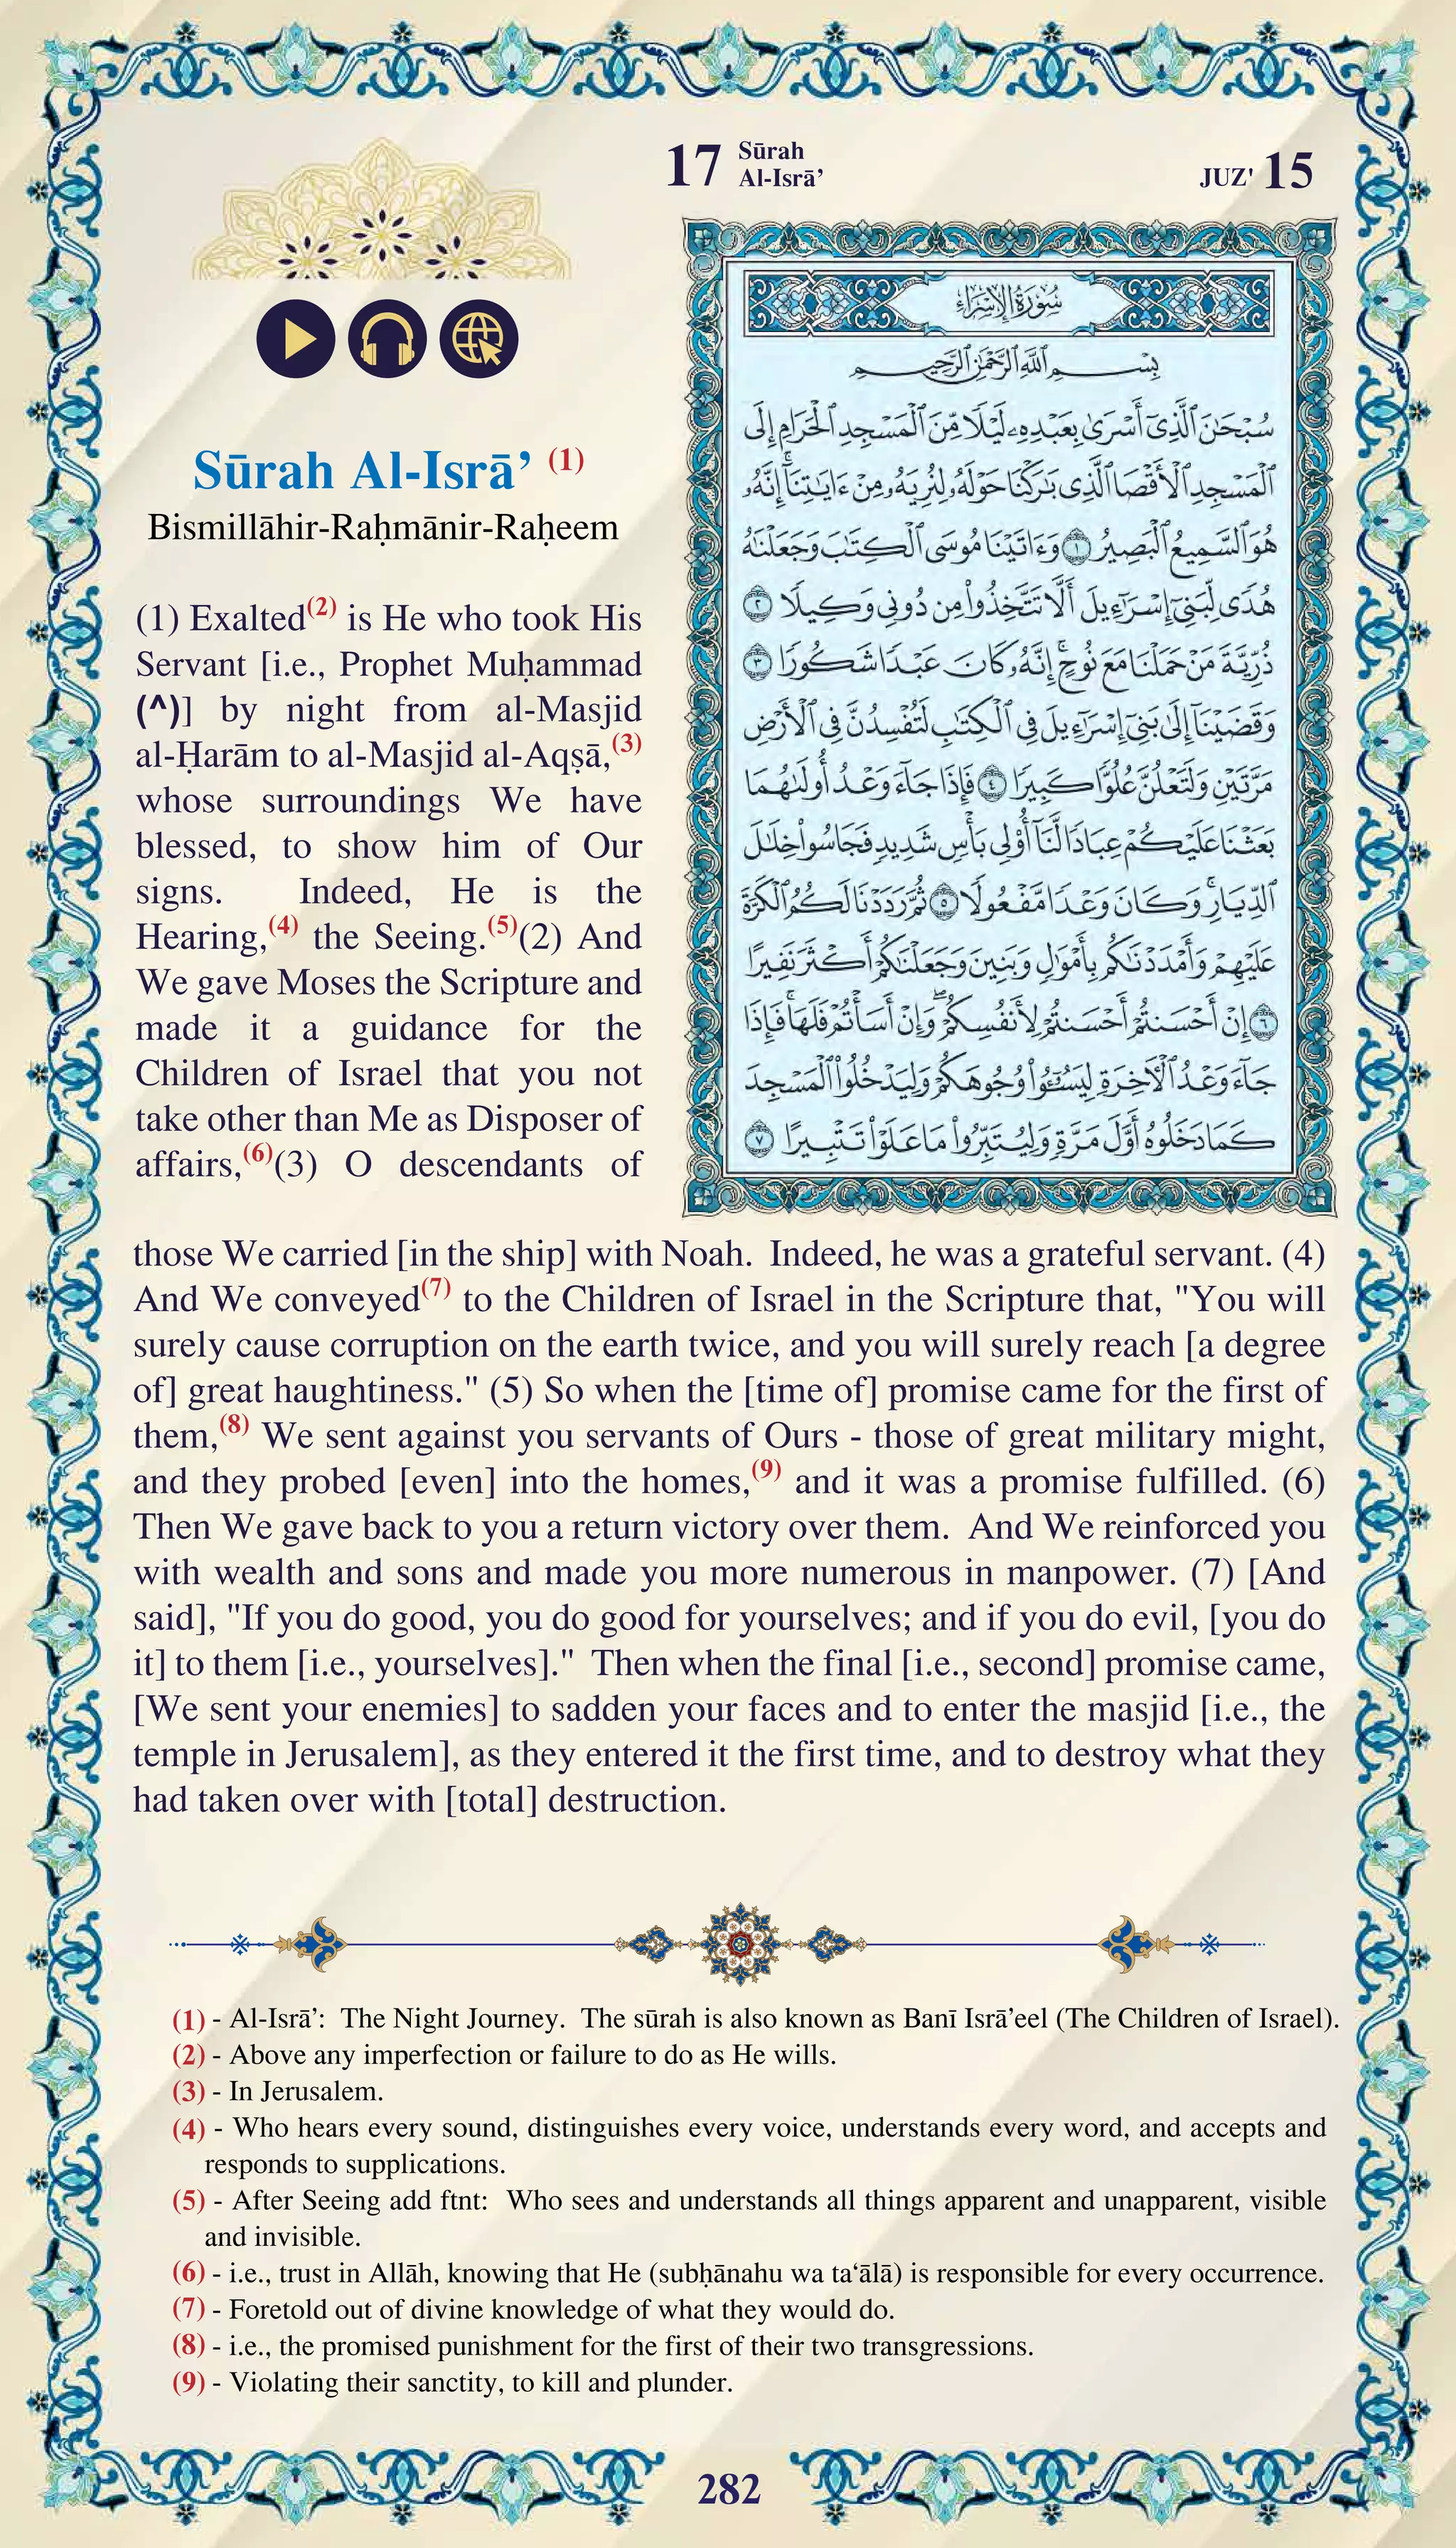 17 Sūrah
Al-Isrā’
JUZ' 15
سُورَةُ الإِسْرَاءِ
بِسْمِ ٱللَّهِ ٱلرَّحْمَٰنِ ٱلرَّحِيمِ
سُبْحَٰنَ ٱلَّذِىٓ أَسْرَىٰ بِعَبْدِهِۦ لَيْلًا مِّنَ ٱلْمَسْجِدِ ٱلْحَرَامِ إِلَى
ٱلْمَسْجِدِ ٱلْأَقْصَا ٱلَّذِى بَٰرَكْنَا حَوْلَهُۥ لِنُرِيَهُۥ مِنْ ءَايَٰتِنَآ ۚ إِنَّهُۥ
هُوَ ٱلسَّمِيعُ ٱلْبَصِيرُ ١ وَءَاتَيْنَا مُوسَى ٱلْكِتَٰبَ وَجَعَلْنَٰهُ
هُدًى لِّبَنِىٓ إِسْرَٰٓءِيلَ أَلَّا تَتَّخِذُوا۟ مِن دُونِى وَكِيلًا ٢
ذُرِّيَّةَ مَنْ حَمَلْنَا مَعَ نُوحٍ ۚ إِنَّهُۥ كَانَ عَبْدًا شَكُورًا ٣
وَقَضَيْنَآ إِلَىٰ بَنِىٓ إِسْرَٰٓءِيلَ فِى ٱلْكِتَٰبِ لَتُفْسِدُنَّ فِى ٱلْأَرْضِ
مَرَّتَيْنِ وَلَتَعْلُنَّ عُلُوًّا كَبِيرًا ٤ فَإِذَا جَآءَ وَعْدُ أُولَىٰهُمَا
بَعَثْنَا عَلَيْكُمْ عِبَادًا لَّنَآ أُو۟لِى بَأْسٍ شَدِيدٍ فَجَاسُوا۟ خِلَٰلَ
ٱلدِّيَارِ ۚ وَكَانَ وَعْدًا مَّفْعُولًا ٥ ثُمَّ رَدَدْنَا لَكُمُ ٱلْكَرَّةَ
عَلَيْهِمْ وَأَمْدَدْنَٰكُم بِأَمْوَٰلٍ وَبَنِينَ وَجَعَلْنَٰكُمْ أَكْثَرَ نَفِيرًا
٦ إِنْ أَحْسَنتُمْ أَحْسَنتُمْ لِأَنفُسِكُمْ ۖ وَإِنْ أَسَأْتُمْ فَلَهَا ۚ فَإِذَا
جَآءَ وَعْدُ ٱلْءَاخِرَةِ لِيَسُۥٓـُٔوا۟ وُجُوهَكُمْ وَلِيَدْخُلُوا۟ ٱلْمَسْجِدَ
كَمَا دَخَلُوهُ أَوَّلَ مَرَّةٍ وَلِيُتَبِّرُوا۟ مَا عَلَوْا۟ تَتْبِيرًا ٧
Sūrah Al-Isrā’ (1)
Bismillāhir-Raḥmānir-Raḥeem
(1) Exalted(2) is He who took His
Servant [i.e., Prophet Muḥammad
(^)] by night from al-Masjid
al-Ḥarām to al-Masjid al-Aqṣā,(3)
whose surroundings We have
blessed, to show him of Our
signs. Indeed, He is the
Hearing,(4) the Seeing.(5)(2) And
We gave Moses the Scripture and
made it a guidance for the
Children of Israel that you not
take other than Me as Disposer of
affairs,(6)(3) O descendants of
those We carried [in the ship] with Noah. Indeed, he was a grateful servant. (4)
And We conveyed(7) to the Children of Israel in the Scripture that, "You will
surely cause corruption on the earth twice, and you will surely reach [a degree
of] great haughtiness." (5) So when the [time of] promise came for the first of
them,(8) We sent against you servants of Ours - those of great military might,
and they probed [even] into the homes,(9) and it was a promise fulfilled. (6)
Then We gave back to you a return victory over them. And We reinforced you
with wealth and sons and made you more numerous in manpower. (7) [And
said], "If you do good, you do good for yourselves; and if you do evil, [you do
it] to them [i.e., yourselves]." Then when the final [i.e., second] promise came,
[We sent your enemies] to sadden your faces and to enter the masjid [i.e., the
temple in Jerusalem], as they entered it the first time, and to destroy what they
had taken over with [total] destruction.
(1) - Al-Isrā’: The Night Journey. The sūrah is also known as Banī Isrā’eel (The Children of Israel).
(2) - Above any imperfection or failure to do as He wills.
(3) - In Jerusalem.
(4) - Who hears every sound, distinguishes every voice, understands every word, and accepts and
responds to supplications.
(5) - After Seeing add ftnt: Who sees and understands all things apparent and unapparent, visible
and invisible.
(6) - i.e., trust in Allāh, knowing that He (subḥānahu wa ta‘ālā) is responsible for every occurrence.
(7) - Foretold out of divine knowledge of what they would do.
(8) - i.e., the promised punishment for the first of their two transgressions.
(9) - Violating their sanctity, to kill and plunder.
282